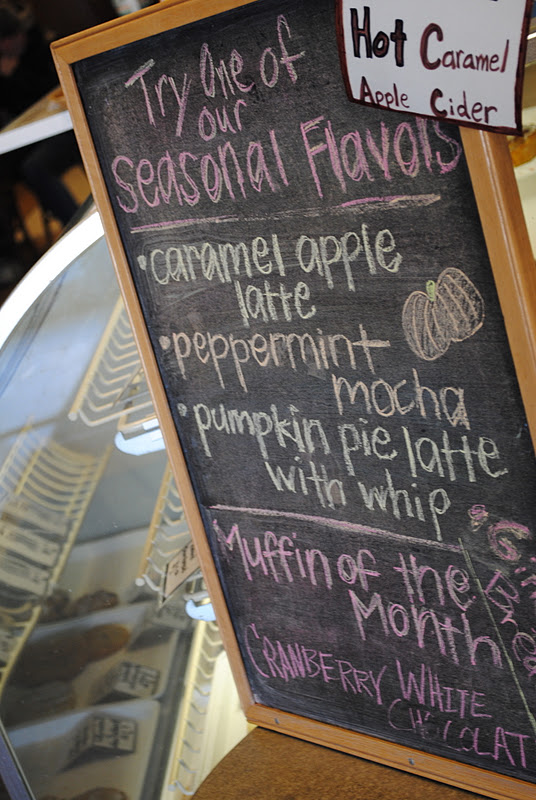 Hot Caramel
Apple Cider
Try One of
our
Seasonal Flavors
• caramel apple
latte
• peppermint
mocha
• pumpkin pie latte
with whip
Muffin of the
Month
CRANBERRY WHITE
CHOCOLAT